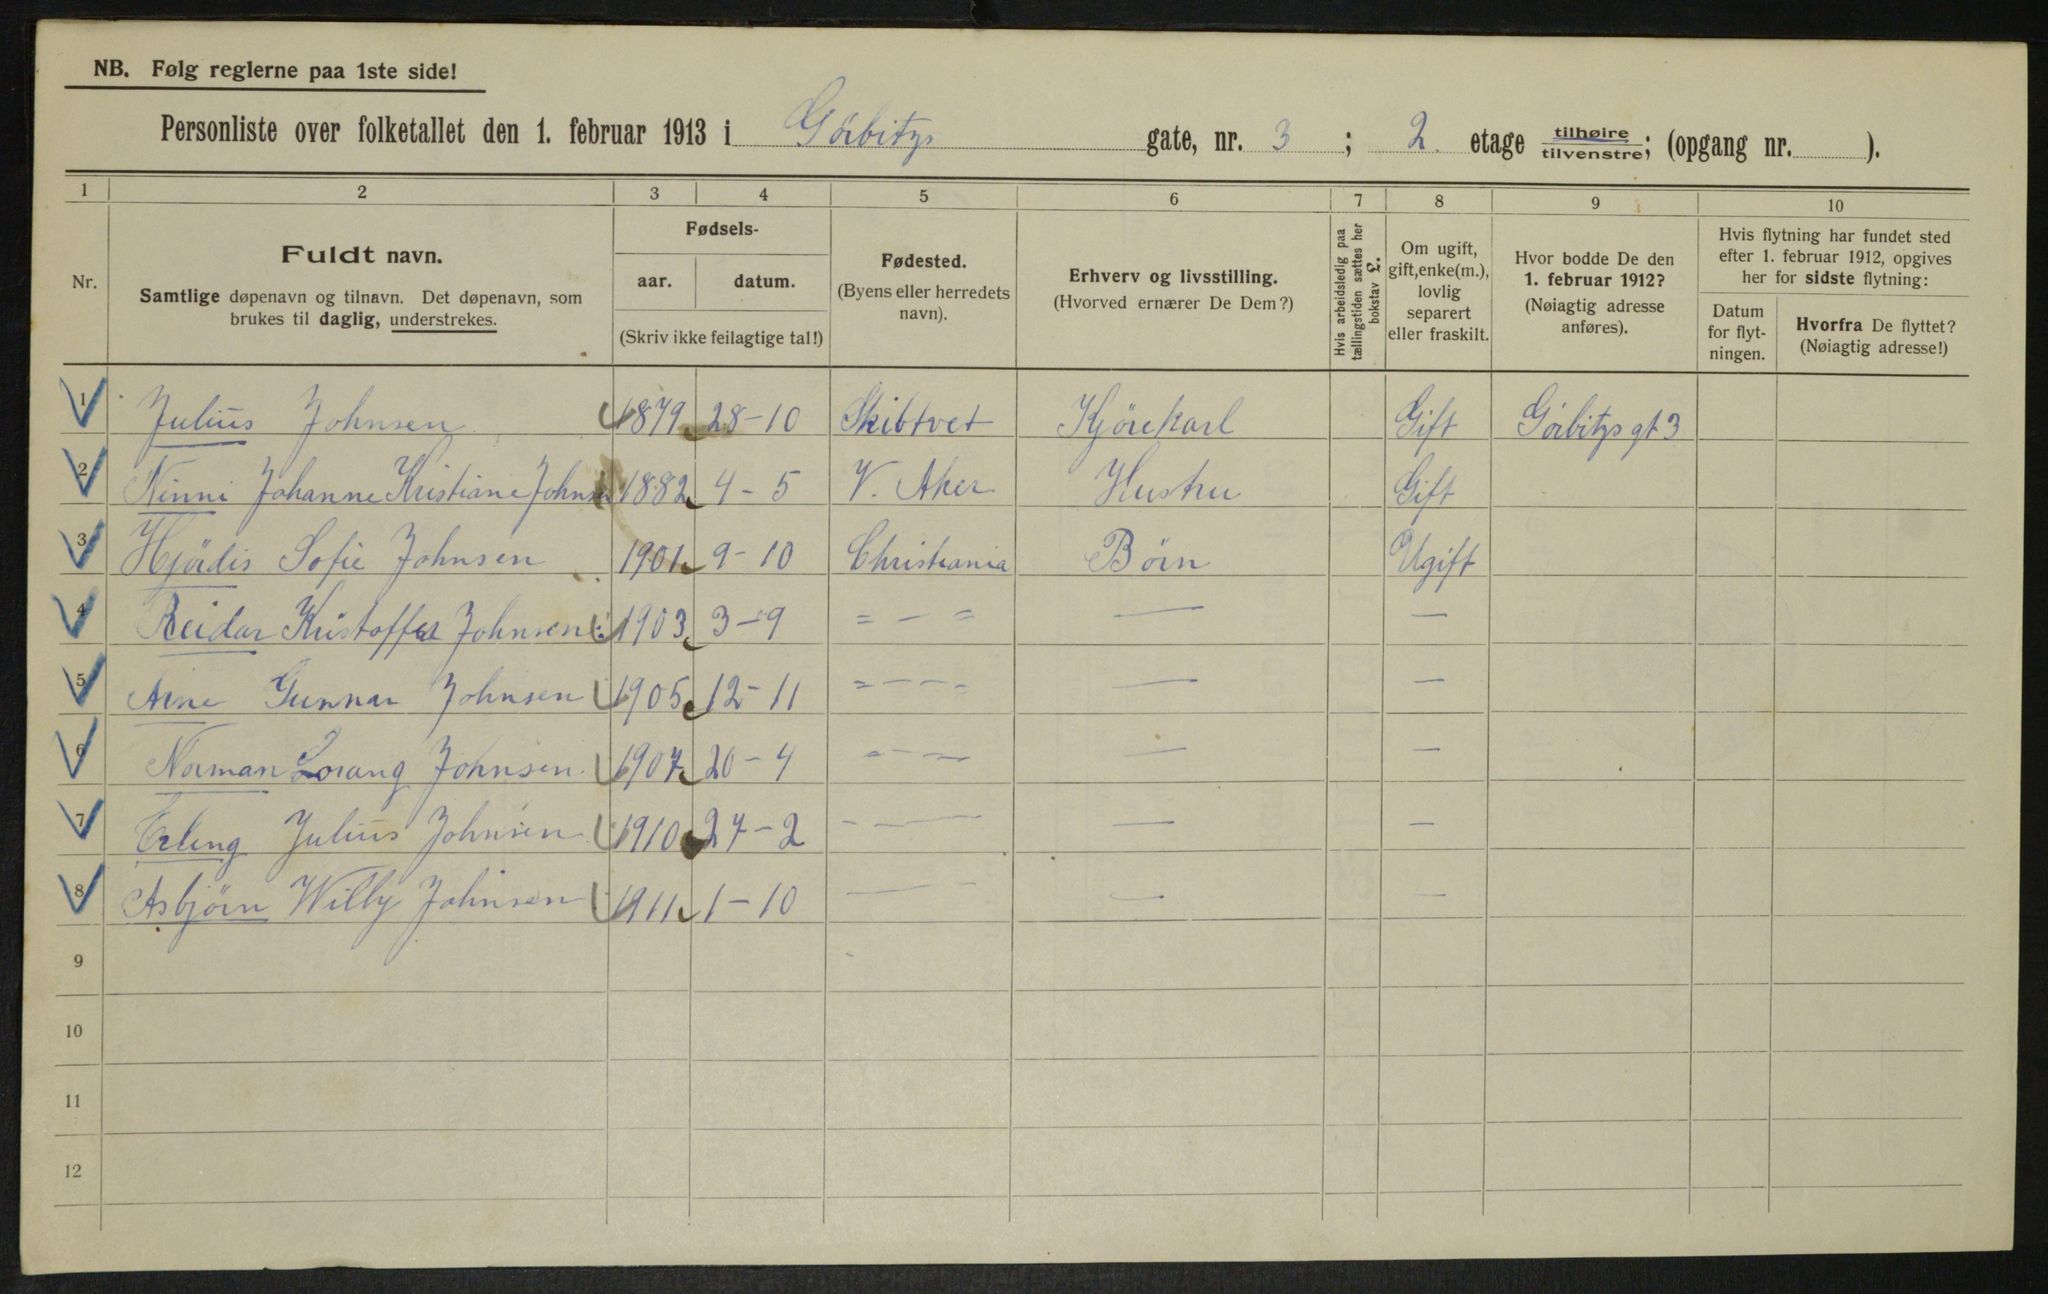 NB. Følg reglerne paa 1ste side!
Personliste over folketallet den 1. februar 1913 i Görbitys gate, nr. 3 ; 2 etage tilhøire/tilvenstre; (opgang nr. ).
1 2 3 4 5 6 7 8 9 10
Nr.
Fuldt navn.
Samtlige døpenavn og tilnavn. Det døpenavn, som
brukes til daglig, understrekes.
Fødsels-
aar. datum.
(Skriv ikke feilagtige tal!)
Fødested.
(Byens eller herredets
navn).
Erhverv og livsstilling.
(Hvorved ernærer De Dem?)
Hvis arbeidsledig paa
tællingstiden sættes her
bokstav L.
Om ugift,
gift, enke(m.),
lovlig
separert
eller fraskilt.
Hvor bodde De den
1. februar 1912?
(Nøiagtig adresse
anføres).
Hvis flytning har fundet sted
efter 1. februar 1912, opgives
her for sidste flytning:
Datum
for flyt-
ningen.
Hvorfra De flyttet?
(Nøiagtig adresse!)
1 Julius Johnsen 1879 28-10 Skibtvet Kjörekarl Gift Görbitys gt 3
2 Ninni Johanne Kristiane Johnsen 1882 4-5 V. Aker Hustru Gift
3 Hjördis Sofie Johnsen 1901 9-10 Christiania Börn Ugift
4 Reidar Kristoffer Johnsen 1903 3-9 = - = — —
5 Arne Gunnar Johnsen 1905 12-11 = - - - — —
6 Norman Lorang Johnsen 1907 20-4 - - - — —
7 Erling Julius Johnsen 1910 27-2 - - - — —
8 Asbjörn Willy Johnsen 1911 1-10 - - - — —
9
10
11
12